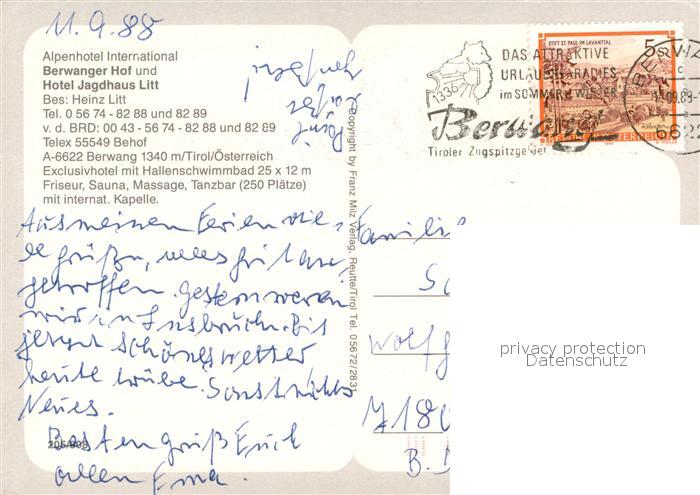 11.9.88
Alpenhotel International
Berwanger Hof und
Hotel Jagdhaus Litt
Bes: Heinz Litt
Tel. 0 56 74 - 82 88 und 82 89
v. d. BRD: 00 43 - 56 74 - 82 88 und 82 89
Telex 55549 Behof
A-6622 Berwang 1340 m/Tirol/Österreich
Exclusivhotel mit Hallenschwimmbad 25 x 12 m
Friseur, Sauna, Massage, Tanzbar (250 Plätze)
mit internat. Kapelle.
Aus meinen Ferien vie-
le grüße, alles gut an-
getroffen. gestern waren
wir in Insbruck. Bis
jetzt schönes wetter
heute trübe. Sonst nichts
Neues.
Besten gruß Euch
allen Erna.
206/808
Copyright by Franz Milz Verlag, Reutte/Tirol Tel. 05672/2831
1336
DAS ATTRAKTIVE
URLAUBSPARADIES
im SOMMER u. WINTER
Berwang
Tiroler Zugspitzgebiet
STIFT ST. PAUL IM LAVANTTAL
5 S
REPUBLIK ÖSTERREICH
BERWA
6622
Familie
Wolfg
7180
privacy protection
Datenschutz